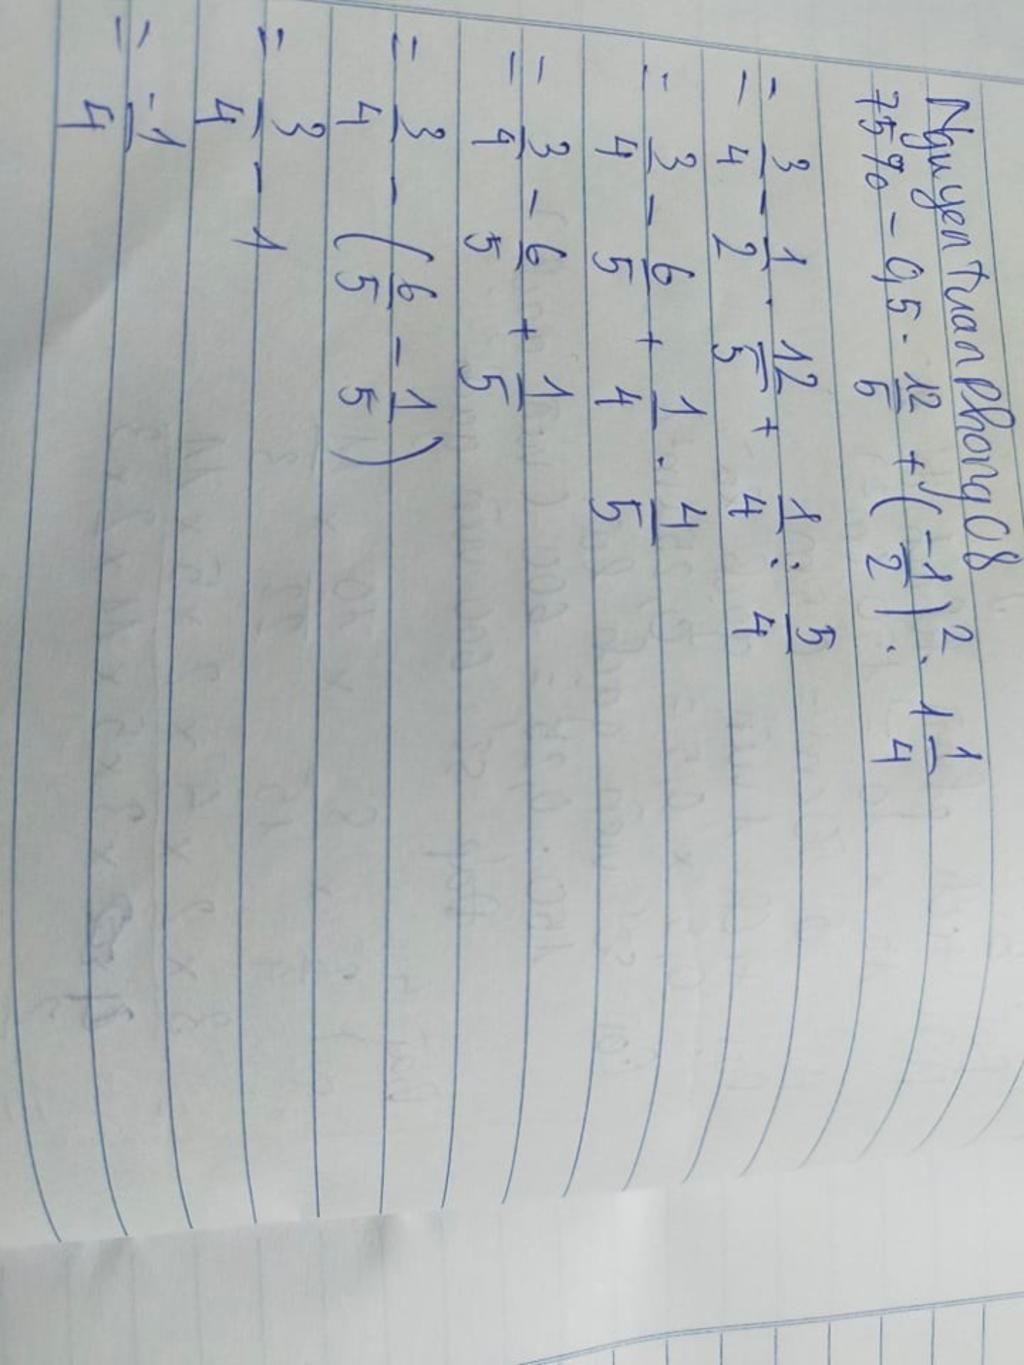 Nguyen tuan Phong 08
75% - 0,5 . 12/5 + (-1/2)² : 1 1/4
= 3/4 - 1/2 . 12/5 + 1/4 : 5/4
= 3/4 - 6/5 + 1/4 . 4/5
= 3/4 - 6/5 + 1/5
= 3/4 - (6/5 - 1/5)
= 3/4 - 1
= -1/4